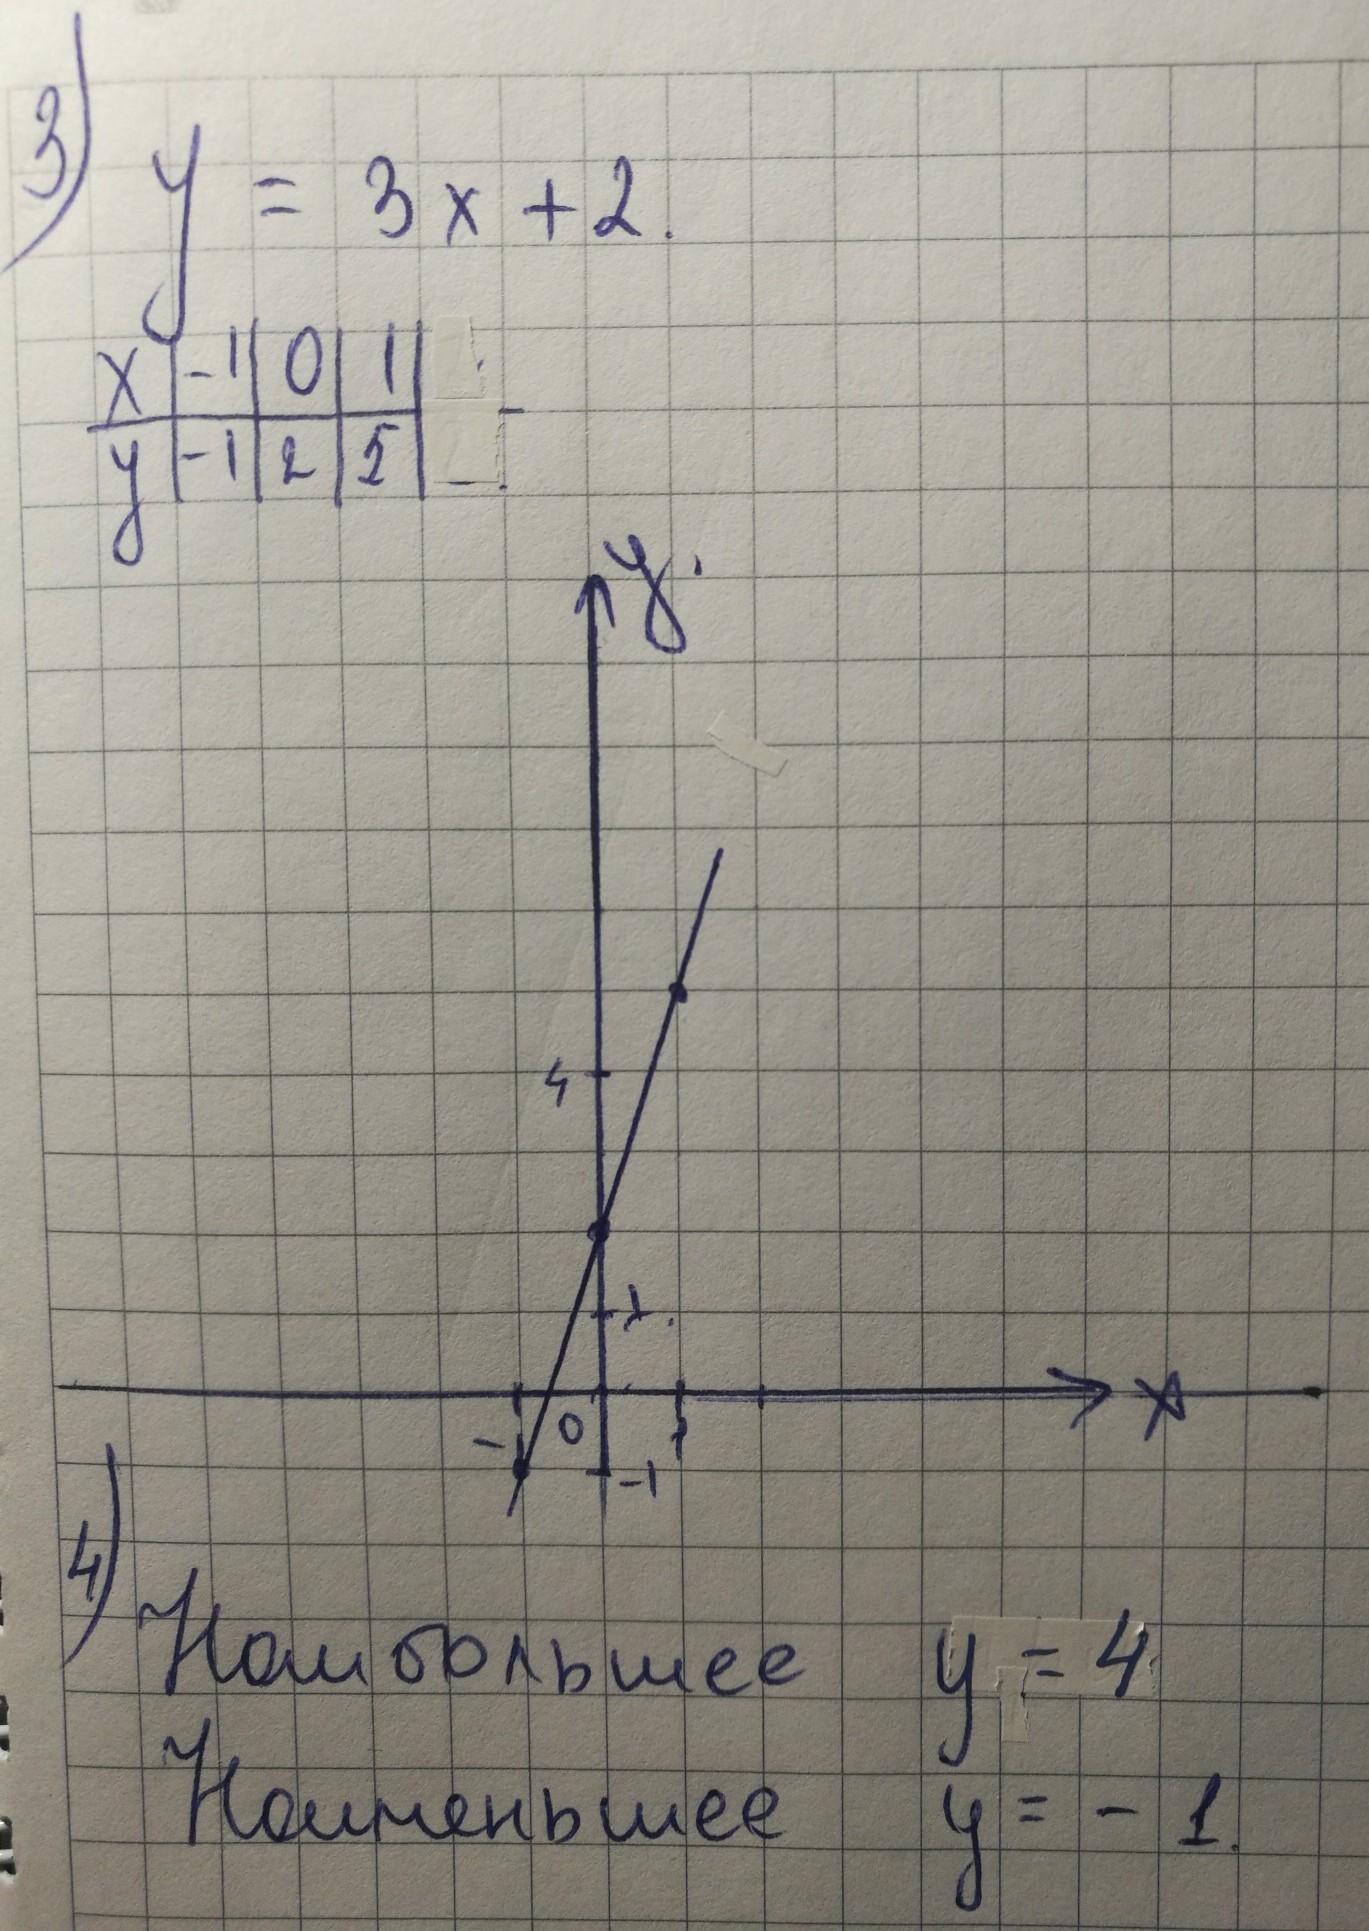 3)
y = 3x + 2.
x | -1 | 0 | 1
y | -1 | 2 | 5
y
4
1.
-1 0 1 x
-1
4)
Наибольшее y = 4
Наименьшее y = - 1.